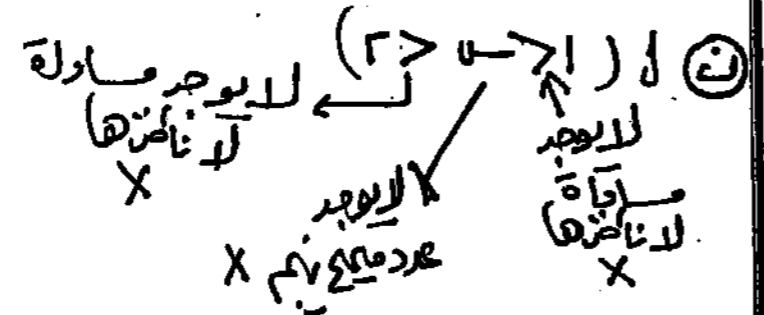 ن ل ( ١ < س < ٢ )
لا يوجد مساواة
لا نأخذها
X
لا يوجد
عدد صحيح بينهم X
لا يوجد
مساواة
لا نأخذها
X